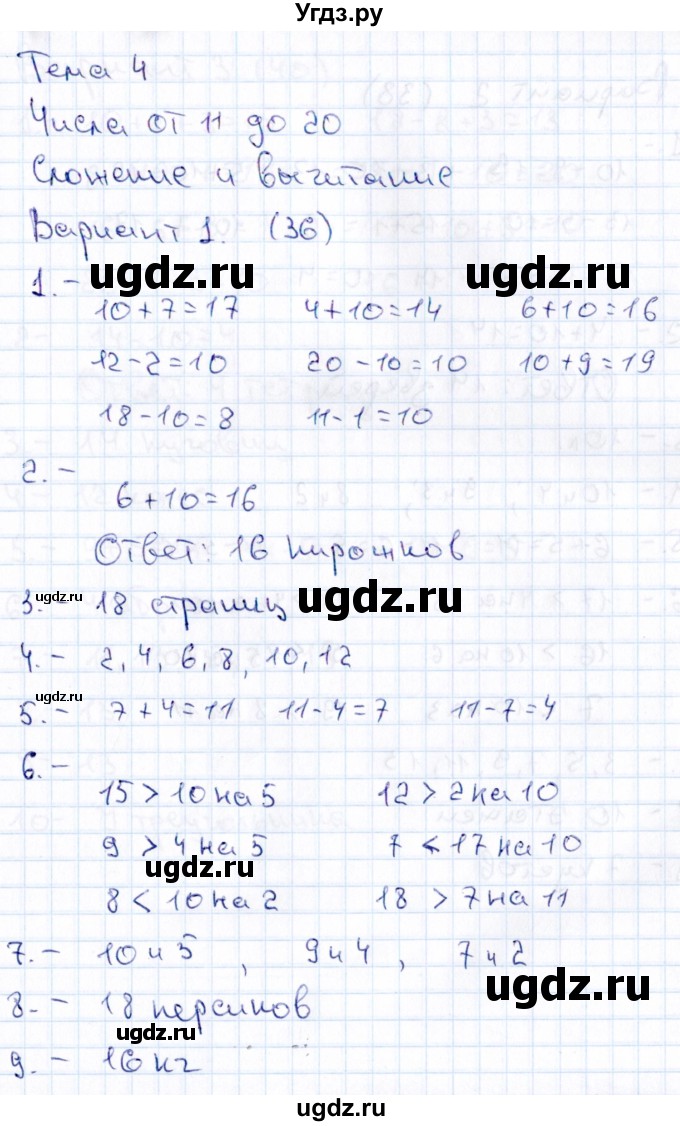 Угдз.ру
Тема 4
Числа от 11 до 20
Сложение и вычитание
Вариант 1. (36)
ugdz.ru ugdz.ru
1. –
10+7=17 4+10=14 6+10=16
12-2=10 20-10=10 10+9=19
18-10=8 11-1=10
2. –
6+10=16
Ответ: 16 пирожков
ugdz.ru ugdz.ru
3. – 18 страниц
4. – 2, 4, 6, 8, 10, 12
ugdz.ru
5. – 7+4=11 11-4=7 11-7=4
6. –
15 > 10 на 5 12 > 2 на 10
9 > 4 на 5 7 < 17 на 10
ugdz.ru
8 < 10 на 2 18 > 7 на 11
7. – 10 и 5 , 9 и 4 , 7 и 2
ugdz.ru
8. – 18 персиков
ugdz.ru
9. – 16 кг
ugdz.ru